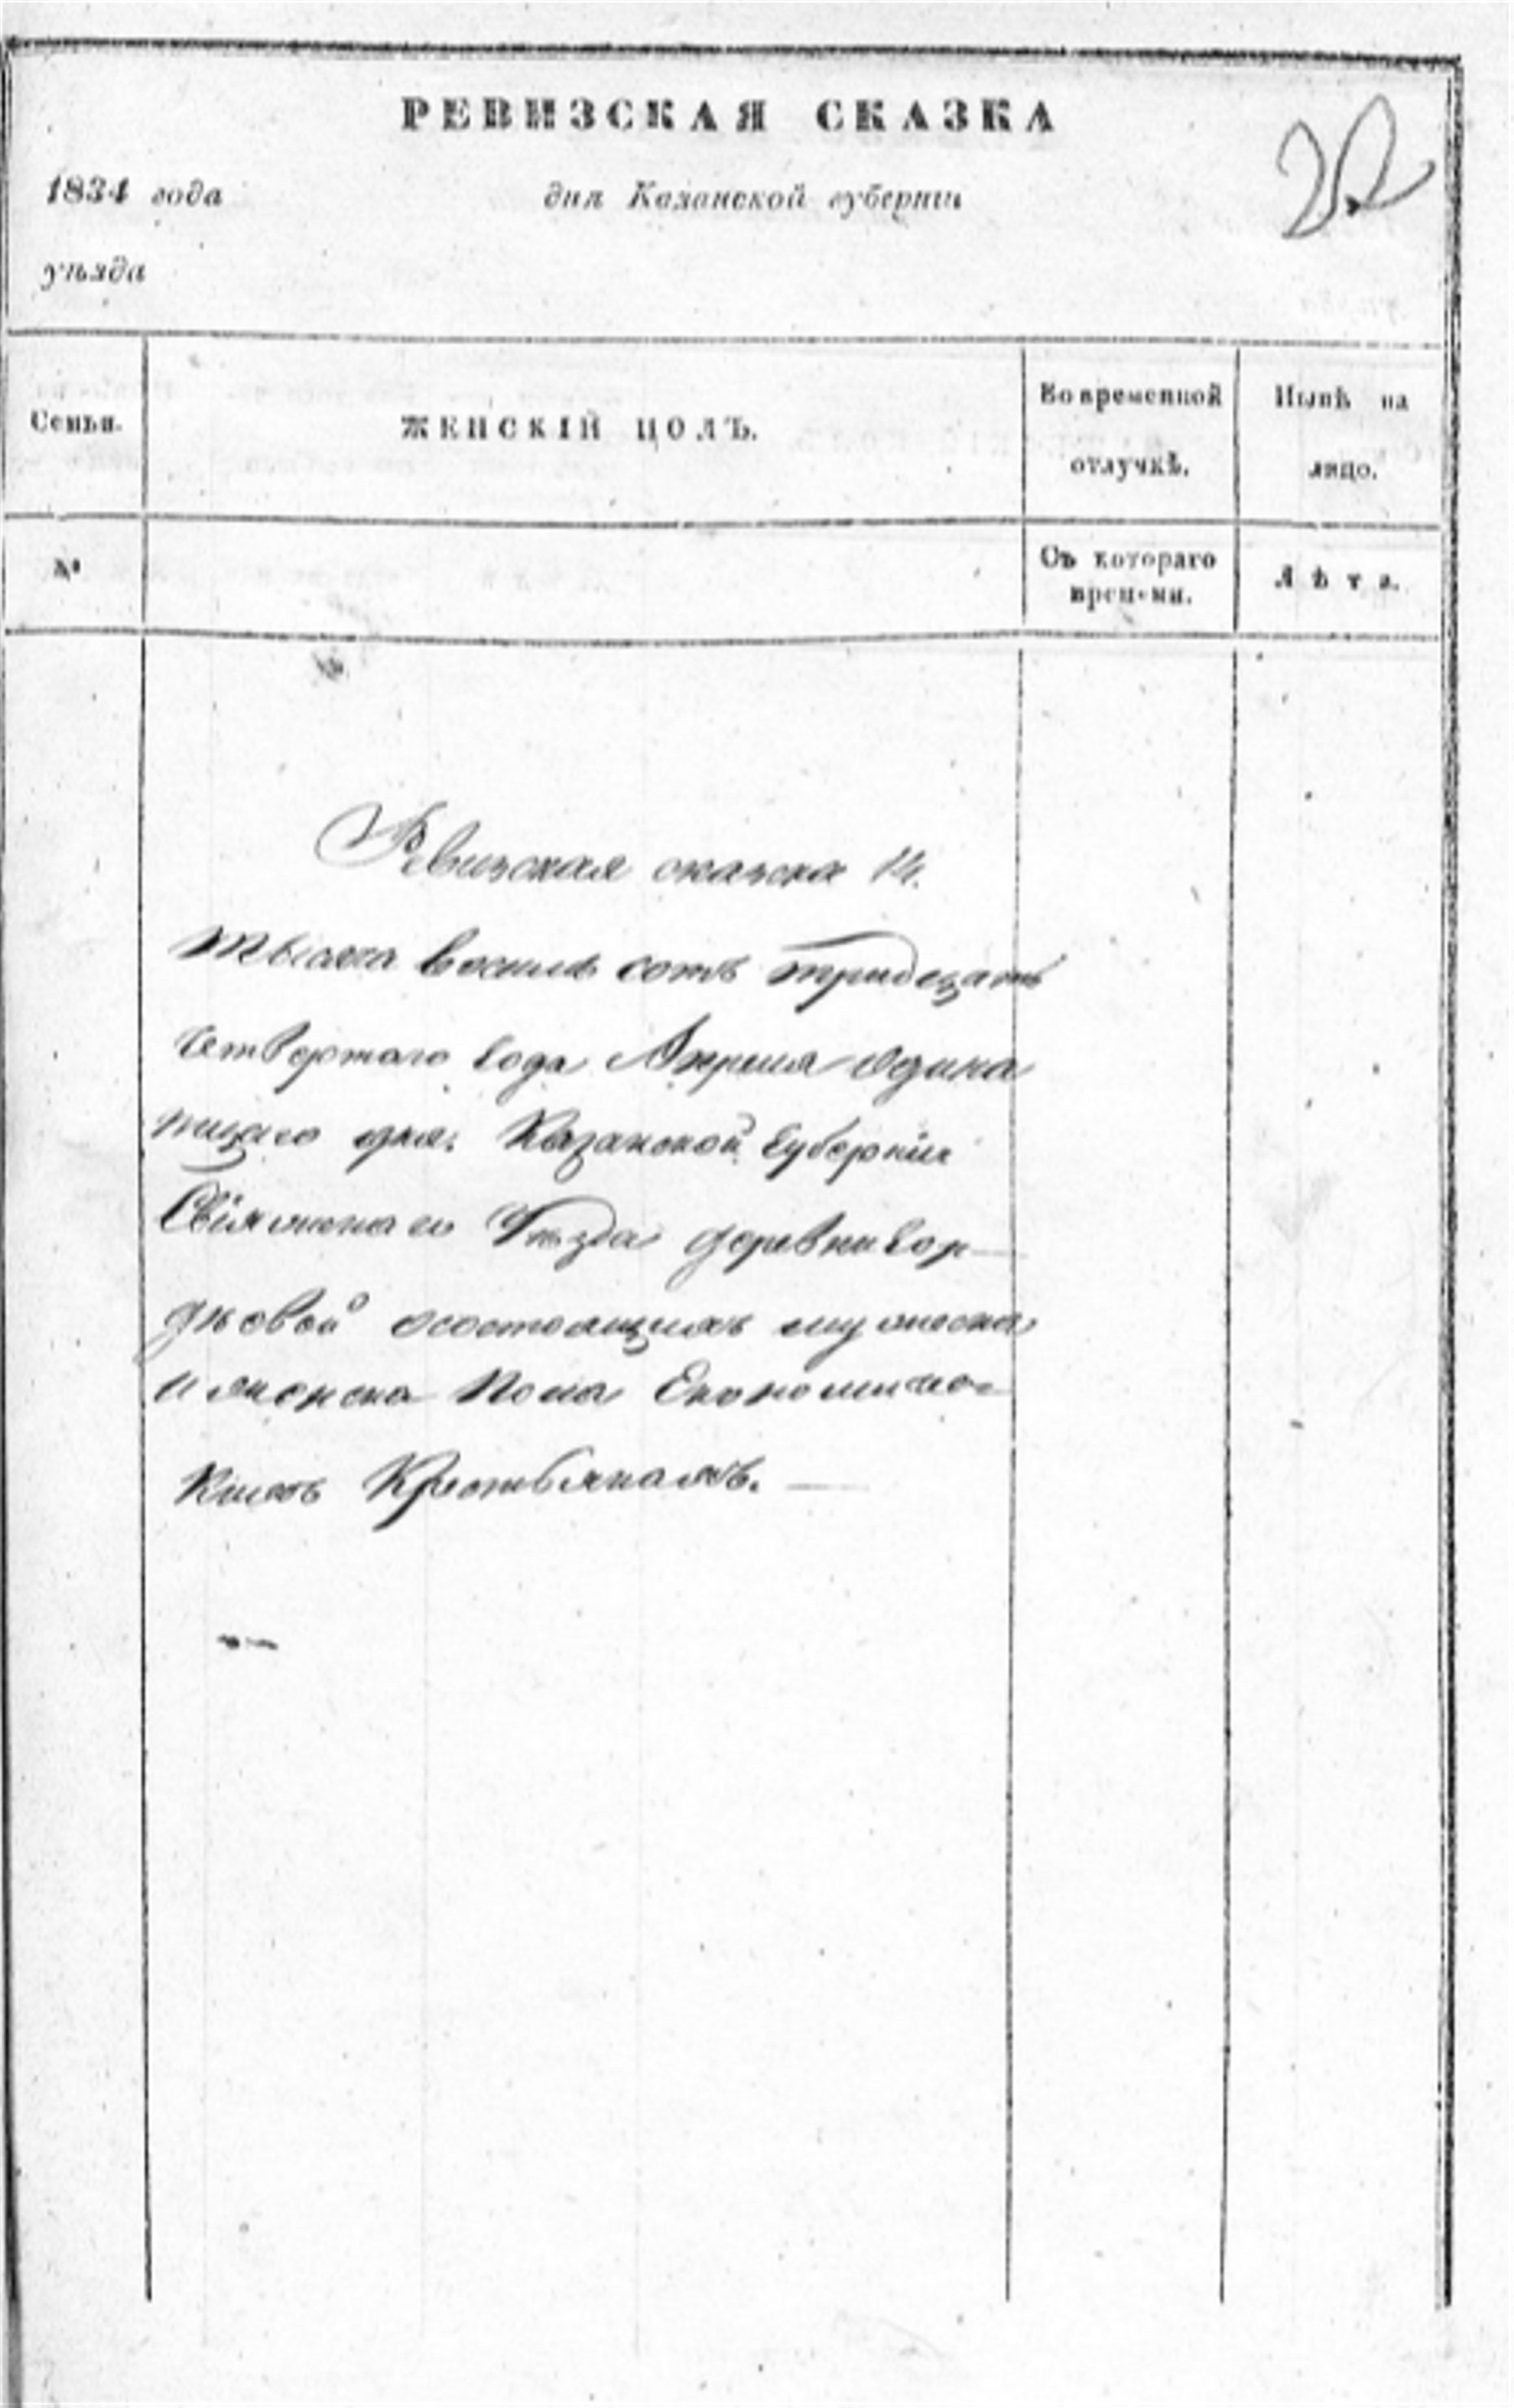 РЕВИЗСКАЯ СКАЗКА
1834 года дня Казанской губернии
уѣзда
Семьи. ЖЕНСКІЙ ПОЛЪ. Во временной отлучкѣ. Нынѣ на лицо.
№ Съ котораго времени. Лѣта.
Ревизская сказка
тысяча восемь сотъ тридецать
четвертаго года Апреля одина
тцаго дня. Казанской Губерніи
Свіяжскаго Уѣзда деревни Гор
дѣевой осостоящихъ мужеска
и женска пола Економиче
кихъ Крестьянахъ.